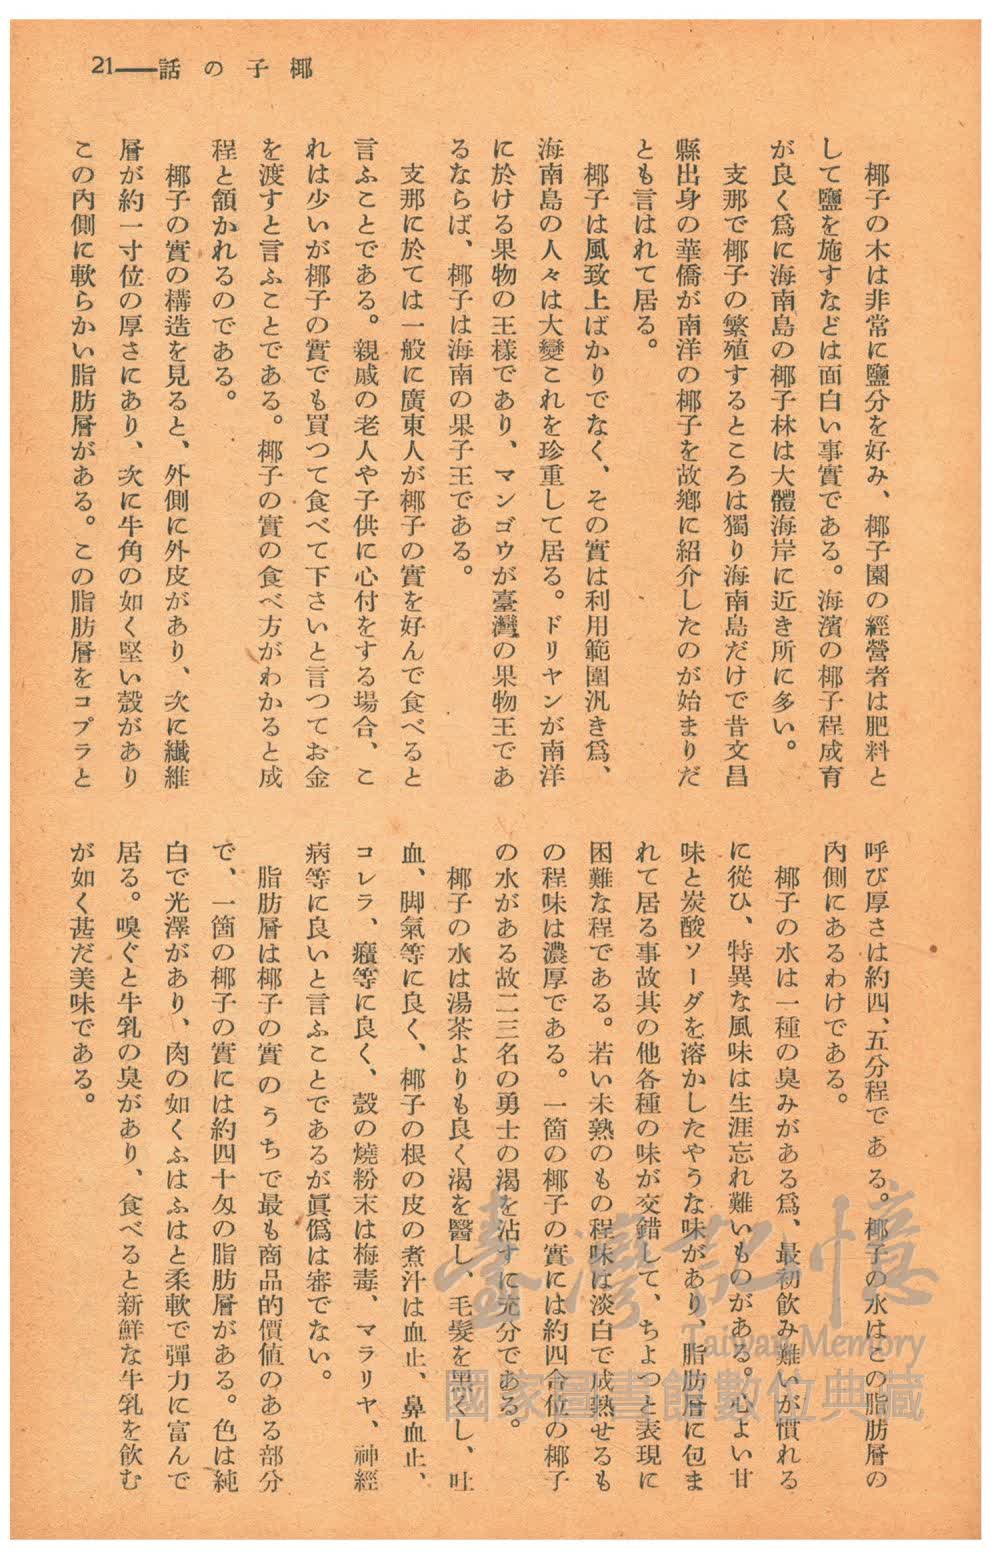 椰子の話——21
椰子の木は非常に鹽分を好み、椰子園の經營者は肥料と
して鹽を施すなどは面白い事實である。海濱の椰子程成育
が良く爲に海南島の椰子林は大體海岸に近き所に多い。
支那で椰子の繁殖するところは獨り海南島だけで昔文昌
縣出身の華僑が南洋の椰子を故鄕に紹介したのが始まりだ
とも言はれて居る。
椰子は風致上ばかりでなく、その實は利用範圍汎き爲、
海南島の人々は大變これを珍重して居る。ドリヤンが南洋
に於ける果物の王樣であり、マンゴウが臺灣の果物王であ
るならば、椰子は海南の果子王である。
支那に於ては一般に廣東人が椰子の實を好んで食べると
言ふことである。親戚の老人や子供に心付をする場合、こ
れは少いが椰子の實でも買つて食べて下さいと言つてお金
を渡すと言ふことである。椰子の實の食べ方がわかると成
程と頷かれるのである。
椰子の實の構造を見ると、外側に外皮があり、次に纖維
層が約一寸位の厚さにあり、次に牛角の如く堅い殼があり
この內側に軟らかい脂肪層がある。この脂肪層をコプラと
呼び厚さは約四、五分程である。椰子の水はこの脂肪層の
內側にあるわけである。
椰子の水は一種の臭みがある爲、最初飮み難いが慣れる
に從ひ、特異な風味は生涯忘れ難いものがある。心よい甘
味と炭酸ソーダを溶かしたやうな味があり、脂肪層に包ま
れて居る事故其の他各種の味が交錯して、ちよつと表現に
困難な程である。若い未熟のもの程味は淡白で成熟せるも
の程味は濃厚である。一箇の椰子の實には約四合位の椰子
の水がある故二三名の勇士の渴を沾すに充分である。
椰子の水は湯茶よりも良く渴を醫し、毛髮を黑くし、吐
血、脚氣等に良く、椰子の根の皮の煮汁は血止、鼻血止、
コレラ、癪等に良く、殼の燒粉末は梅毒、マラリヤ、神經
病等に良いと言ふことであるが眞僞は審でない。
脂肪層は椰子の實のうちで最も商品的價値のある部分
で、一箇の椰子の實には約四十匁の脂肪層がある。色は純
白で光澤があり、肉の如くふはふはと柔軟で彈力に富んで
居る。嗅ぐと牛乳の臭があり、食べると新鮮な牛乳を飮む
が如く甚だ美味である。
臺灣記憶
Taiwan Memory
國家圖書館數位典藏